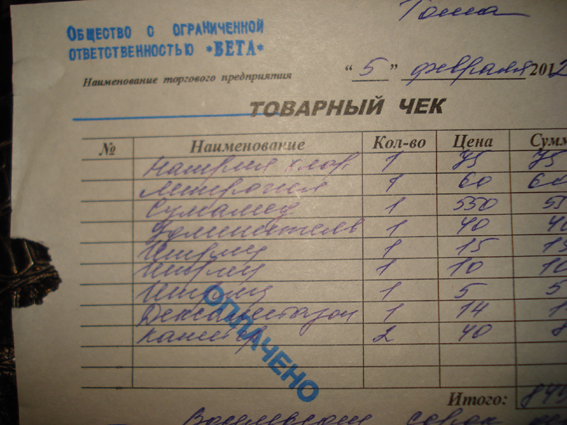 Тоша
ОБЩЕСТВО С ОГРАНИЧЕННОЙ
ОТВЕТСТВЕННОСТЬЮ «ВЕТА»
Наименование торгового предприятия
“ 5 ” февраля 2012
ТОВАРНЫЙ ЧЕК
№ Наименование Кол-во Цена Сумм
Натрия хлор 1 75 75
Метрогил 1 60 60
Сумамед 1 550 55
1 40 40
Шприц 1 15 15
Шприц 1 10 10
Шприц 1 5 5
Дексаметазон 1 14 1
Катетер 2 40 8
ОПЛАЧЕНО
Итого: 849
Восемьсот сорок